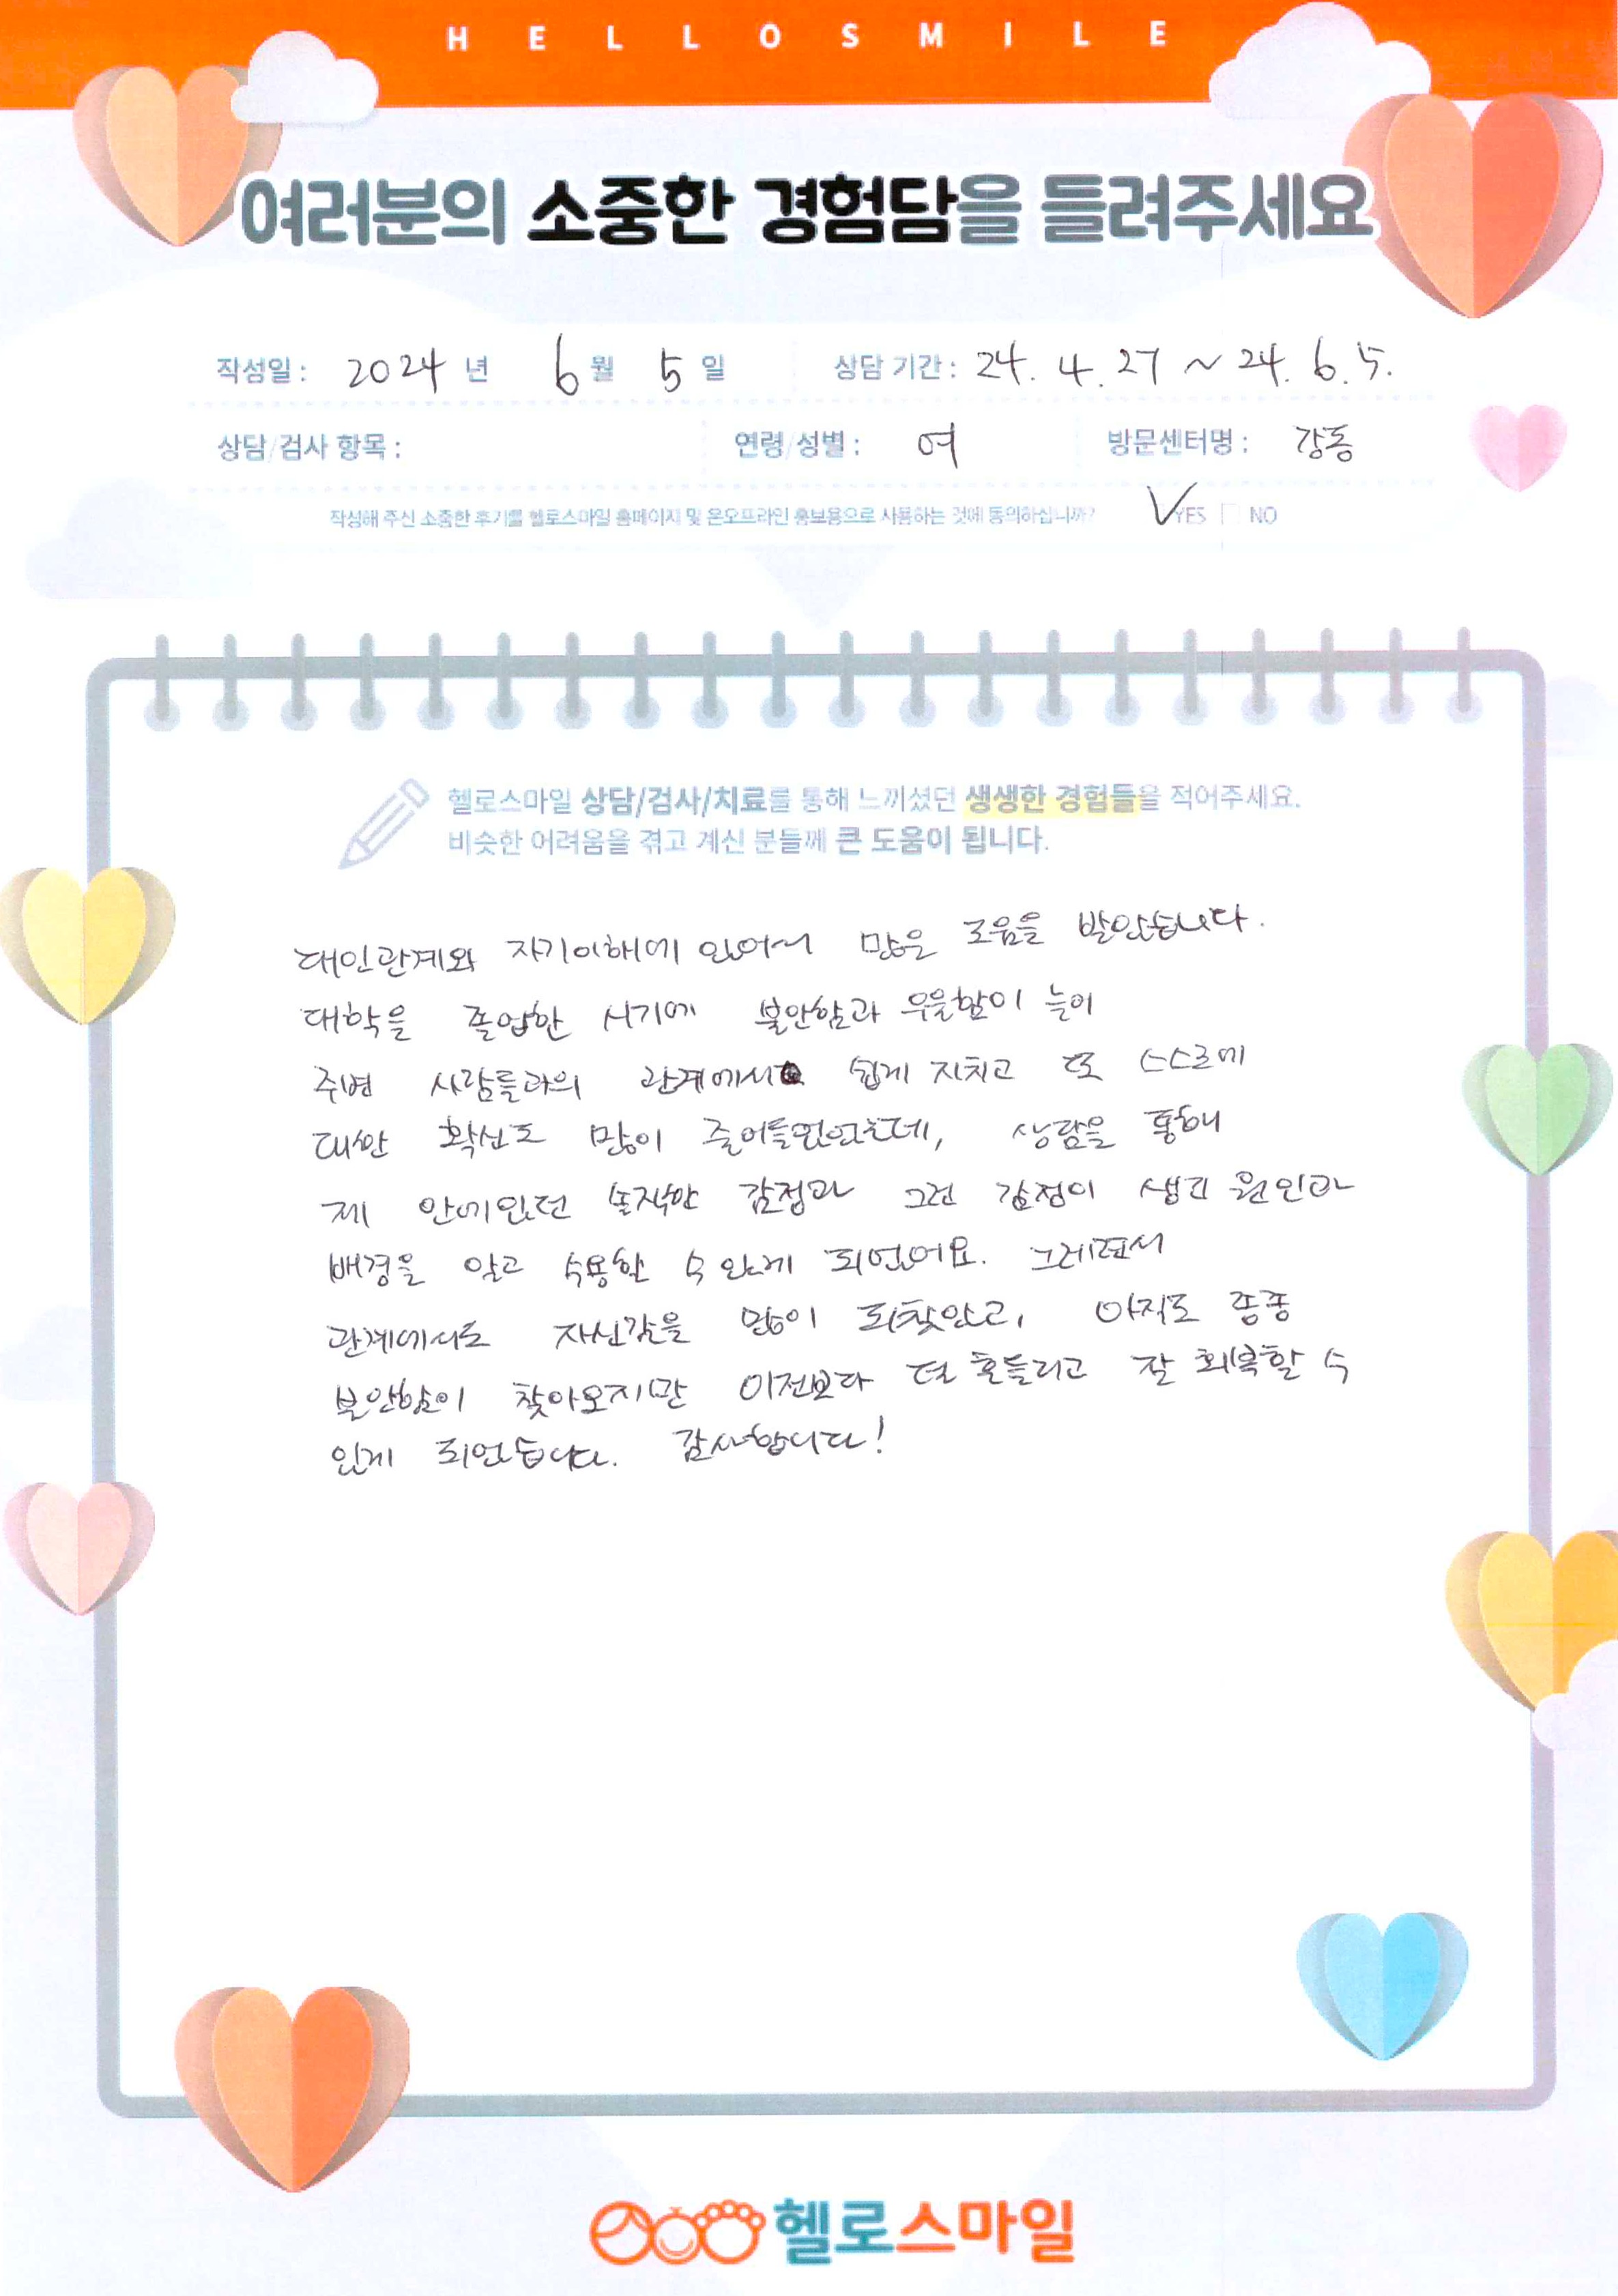 HELLOSMILE
여러분의 소중한 경험담을 들려주세요
작성일 : 2024 년 6 월 5 일 상담 기간 : 24. 4. 27 ~ 24. 6. 5.
상담/검사 항목 : 연령/성별 : 여 방문센터명 : 강동
작성해 주신 소중한 후기를 헬로스마일 홈페이지 및 온오프라인 홍보용으로 사용하는 것에 동의하십니까? YES NO
헬로스마일 상담/검사/치료를 통해 느끼셨던 생생한 경험들을 적어주세요.
비슷한 어려움을 겪고 계신 분들께 큰 도움이 됩니다.
대인관계와 자기이해에 있어서 많은 도움을 받았습니다.
대학을 졸업한 시기에 불안함과 우울함이 늘어
주변 사람들과의 관계에서 쉽게 지치고 또 스스로에
대한 확신도 많이 줄어들었었는데, 상담을 통해
제 안에있던 솔직한 감정과 그런 감정이 생긴 원인과
배경을 알고 수용할 수 있게 되었어요. 그러면서
관계에서도 자신감을 많이 되찾았고, 아직도 종종
불안함이 찾아오지만 이전보다 덜 흔들리고 잘 회복할 수
있게 되었습니다. 감사합니다!
헬로스마일